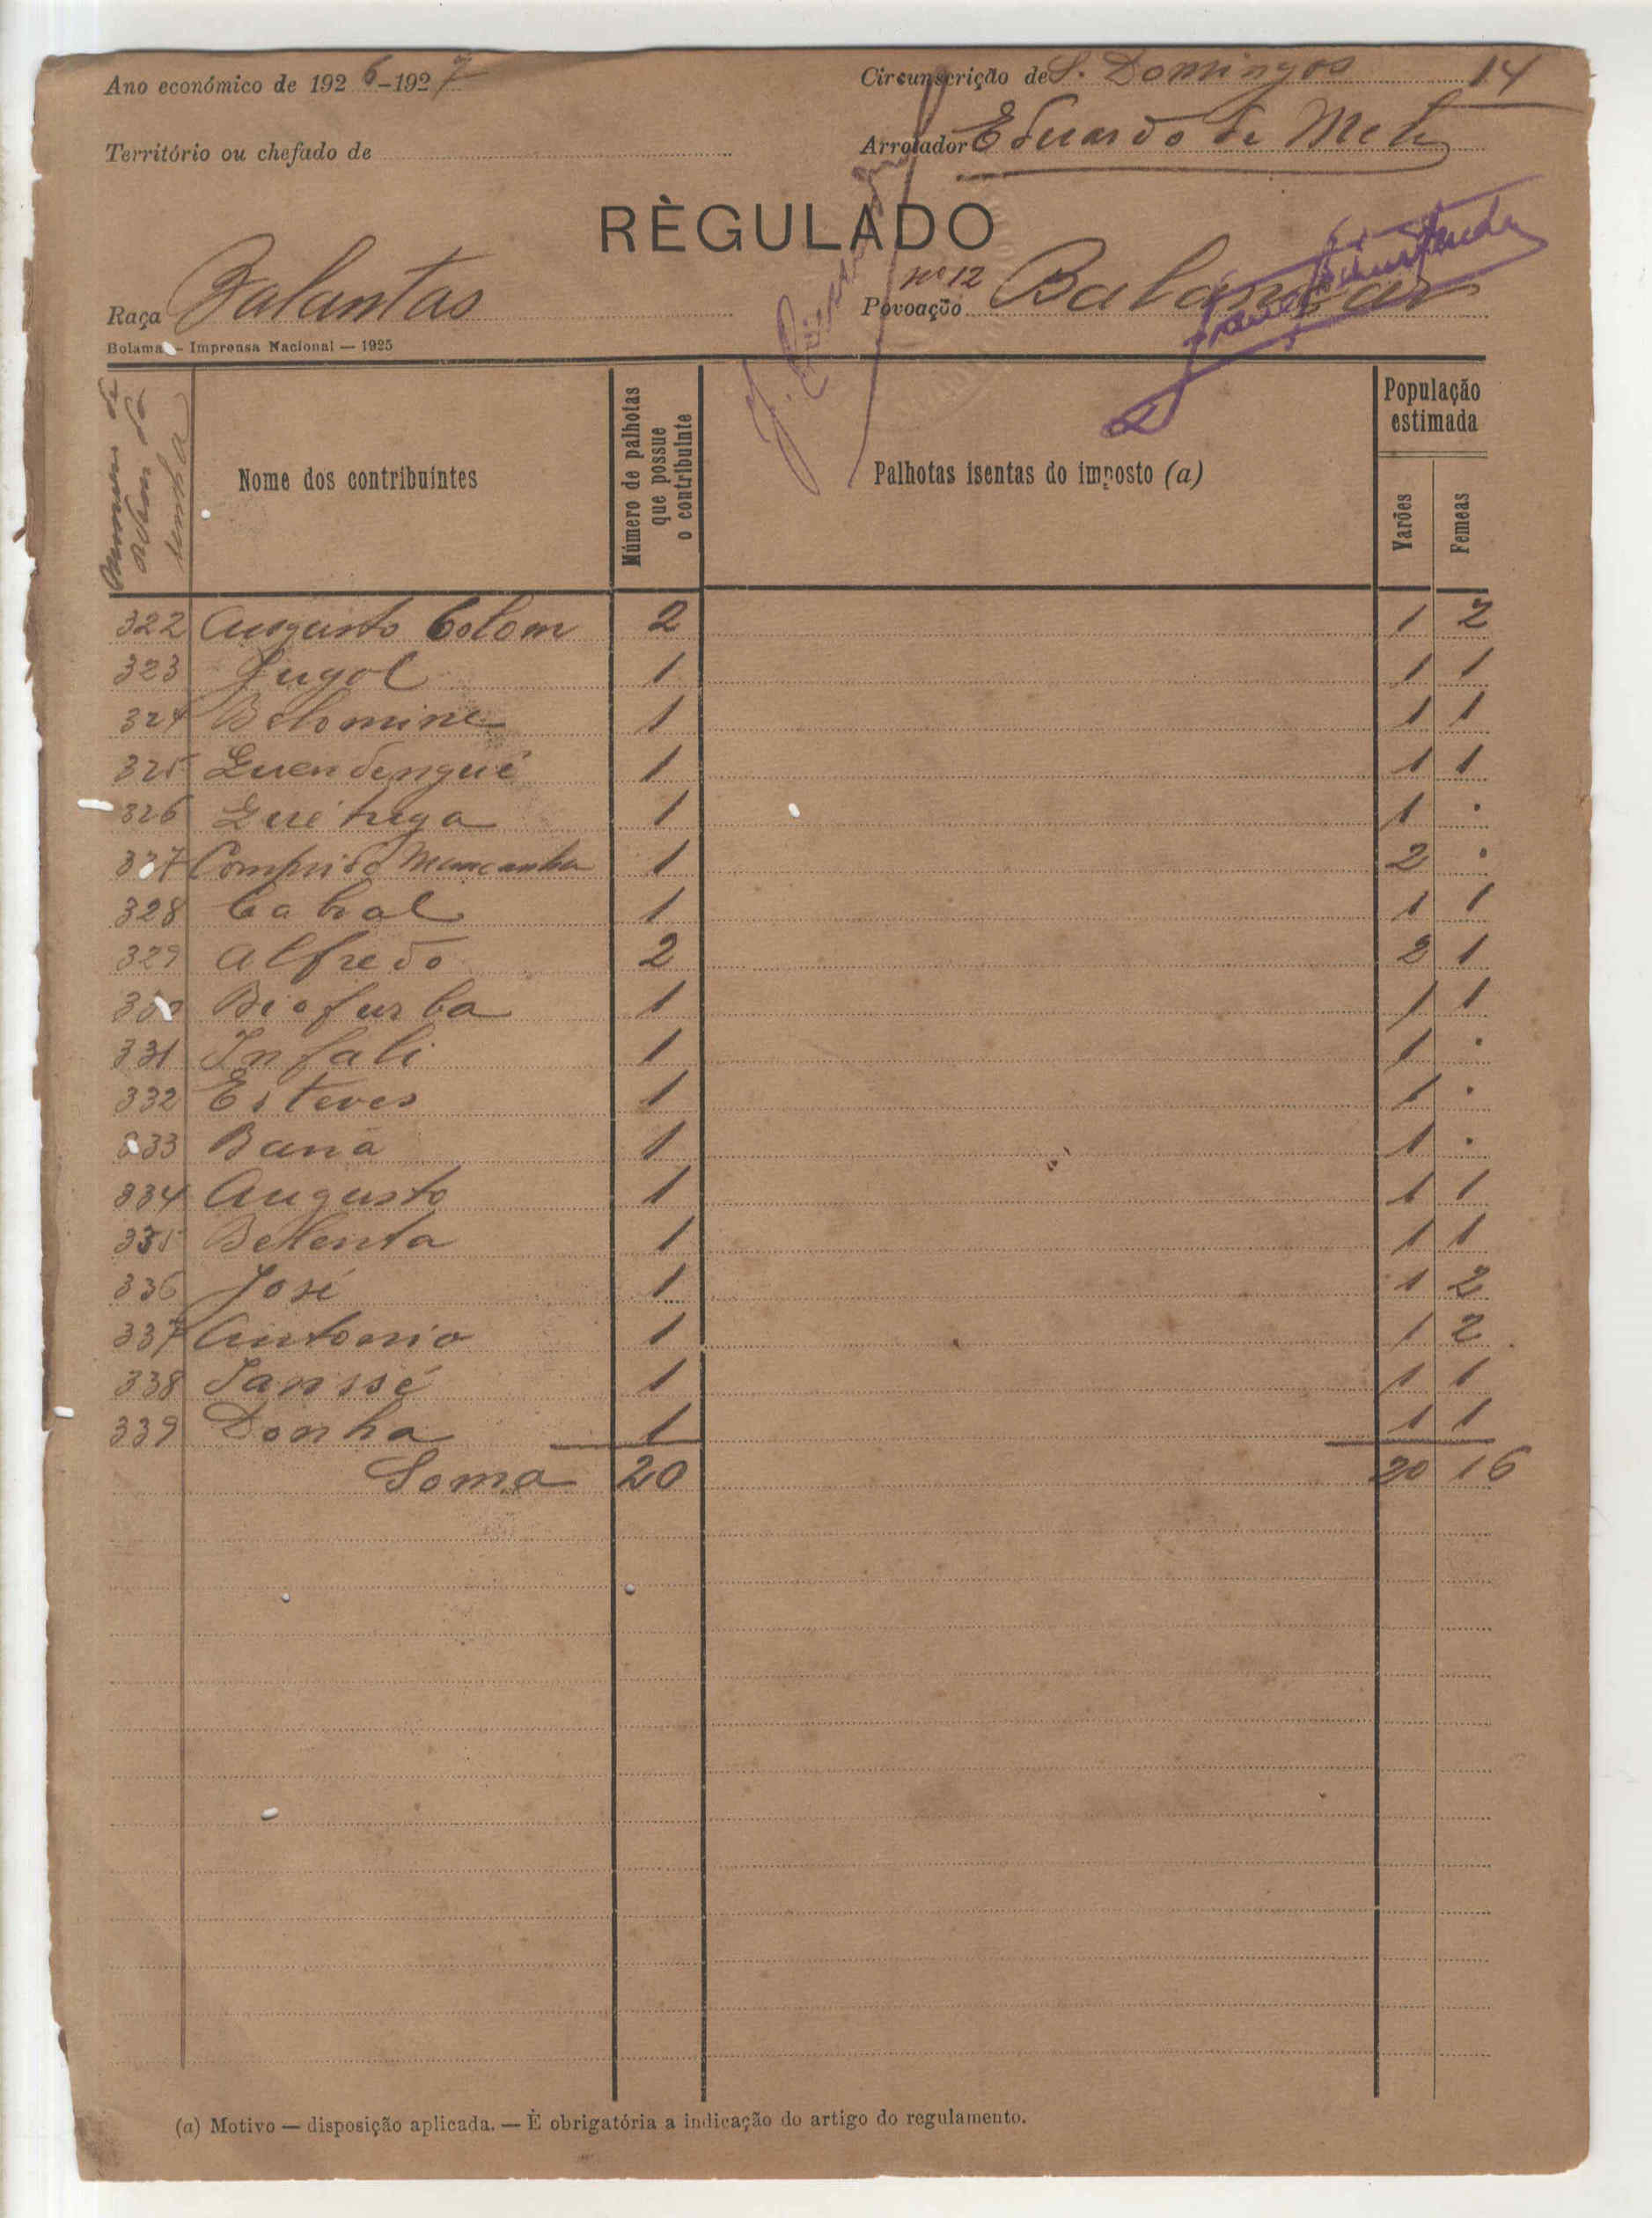 Ano económico de 1926-1927
Circunscrição de S. Domingos 14
Território ou chefado de
Arrolador Eduardo de
RÈGULADO
nº 12
Raça Balantas
Povoação
Bolama — Imprensa Nacional — 1925
Numero de
Nome dos contribuintes
Número de palhotas que possue o contribuinte
Palhotas isentas do imposto (a)
População estimada
Varões
Femeas
322 Augusto Colom 2 1 2
323 Jugol 1 1 1
324 Belomine 1 1 1
325 Quendengué 1 1 1
326 1 1 .
327 Comprido Mancanha 1 2 .
328 Cabral 1 1 1
329 Alfredo 2 2 1
330 Biofurba 1 1 1
331 Infali 1 1 .
332 Esteves 1 1 .
333 Baná 1 1 .
334 Augusto 1 1 1
335 1 1 1
336 José 1 1 2
337 Antonio 1 1 2
338 Sanssé 1 1 1
339 Donha 1 1 1
Soma 20 20 16
(a) Motivo — disposição aplicada. — É obrigatória a indicação do artigo do regulamento.